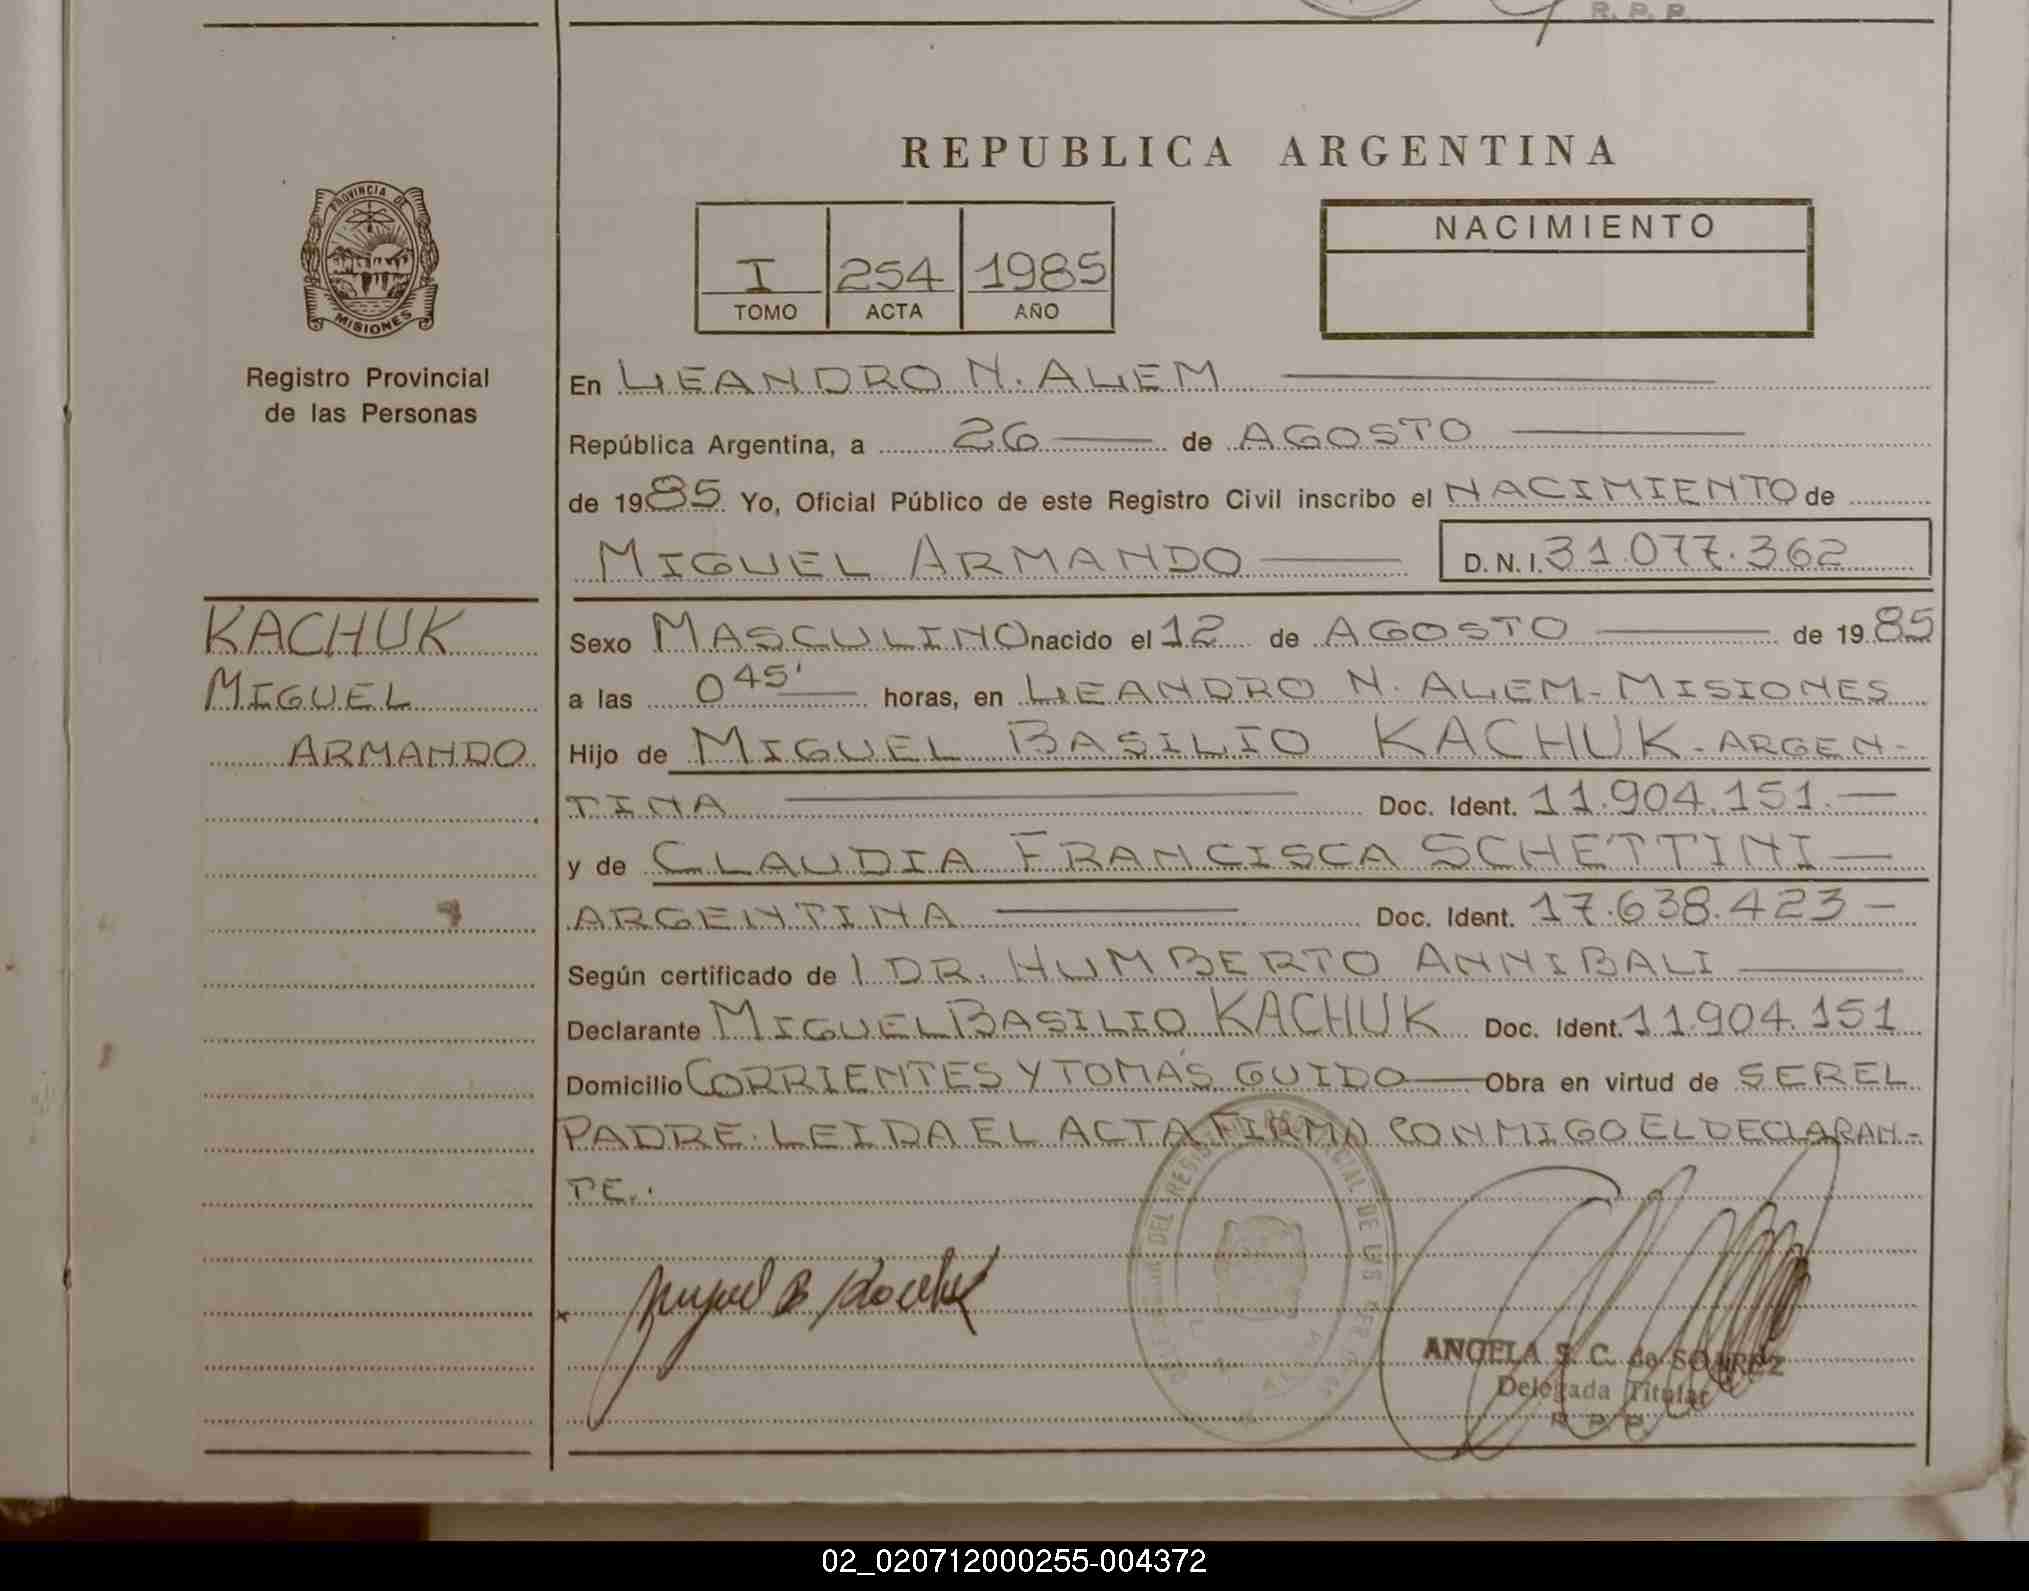 R. P. P.
REPUBLICA ARGENTINA
PROVINCIA DE
MISIONES
Registro Provincial
de las Personas
I 254 1985
TOMO ACTA AÑO
NACIMIENTO
En LEANDRO N. ALEM
República Argentina, a 26 de AGOSTO
de 1985 Yo, Oficial Público de este Registro Civil inscribo el NACIMIENTO de
MIGUEL ARMANDO D.N.I. 31.077.362
KACHUK
MIGUEL
ARMANDO
Sexo MASCULINO nacido el 12 de AGOSTO de 1985
a las 0 45' horas, en LEANDRO N. ALEM - MISIONES
Hijo de MIGUEL BASILIO KACHUK - ARGEN-
TINA Doc. Ident. 11.904.151.-
y de CLAUDIA FRANCISCA SCHETTINI
ARGENTINA Doc. Ident. 17.638.423-
Según certificado de l DR. HUMBERTO ANNIBALI
Declarante MIGUEL BASILIO KACHUK Doc. Ident. 11.904.151
Domicilio CORRIENTES Y TOMÁS GUIDO Obra en virtud de SER EL
PADRE. LEIDA EL ACTA FIRMA CONMIGO EL DECLARAN-
TE.
DEL REGISTRO PROVINCIAL DE LAS PERSONAS
Miguel B Kachuk
ANGELA S. C. de SOAREZ
Delegada Titular
R. P. P.
02_020712000255-004372